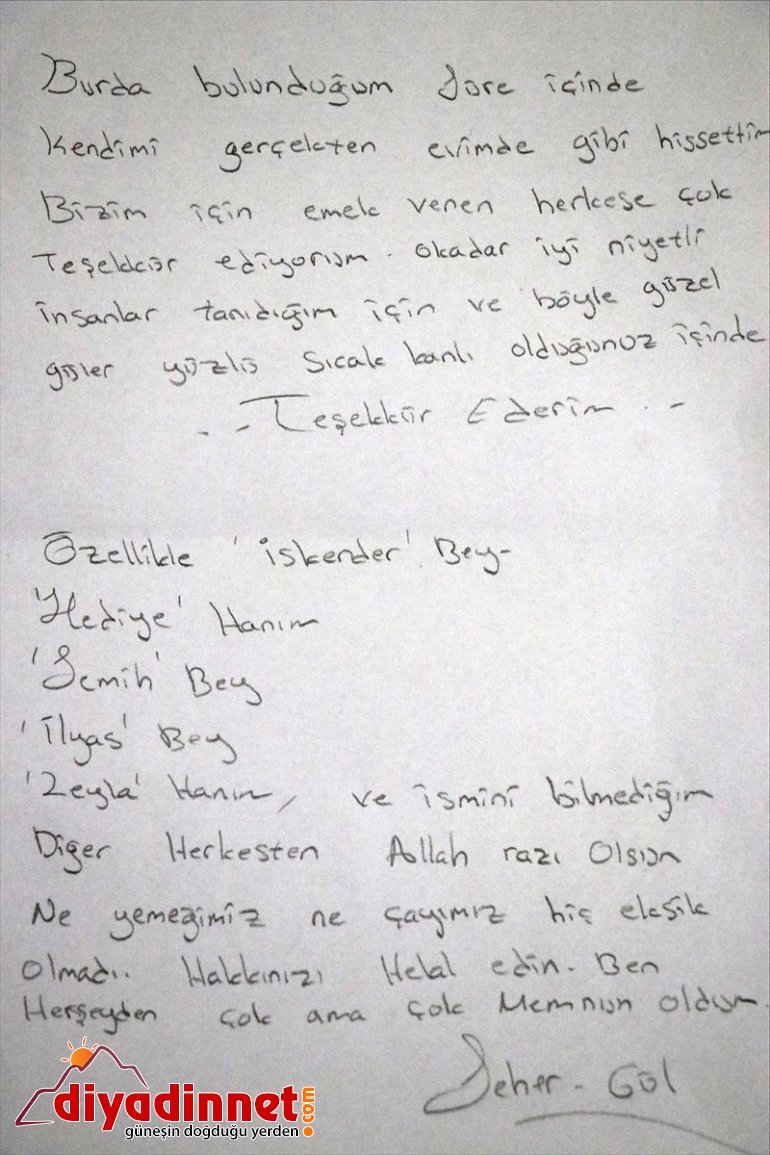 Burda bulunduğum süre içinde
Kendimi gerçekten evimde gibi hissettim
Bizim için emek veren herkese çok
Teşekkür ediyorum. okadar iyi niyetli
insanlar tanıdığım için ve böyle güzel
güler yüzlü sıcak kanlı olduğunuz içinde
. - Teşekkür Ederim . -
Özellikle 'iskender' Bey-
'Hediye' Hanım
'Semih' Bey
'İlyas' Bey
'Zeyla' Hanım, ve ismini bilmediğim
Diğer Herkesten Allah razı Olsun
Ne yemeğimiz ne çayımız hiç eksik
Olmadı.. Hakkınızı Helal edin. Ben
Herşeyden çok ama çok Memnun oldum.
Seher - Gül
diyadinnet.com
güneşin doğduğu yerden